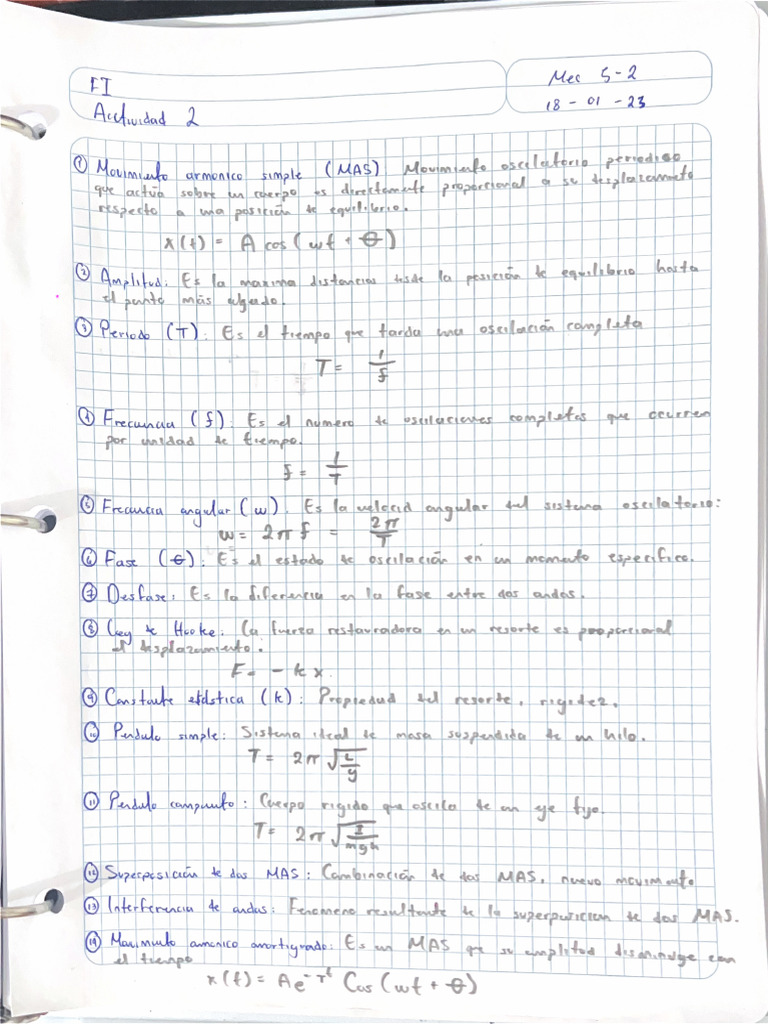 FI
Acttividad 2
Mec 5-2
18-01-23
① Movimiento armonico simple (MAS) Movimiento oscilatorio periodico
que actúa sobre un cuerpo es directamente proporcional a su desplazamiento
respecto a una posición de equilibrio.
x(t) = A cos(wt + θ)
② Amplitud: Es la maxima distancias desde la posición de equilibrio hasta
el punto más alejado.
③ Periodo (T): Es el tiempo que tarda una oscilación completa
T = 1/f
④ Frecuncia (f): Es el numero de oscilaciones completas que ocurren
por unidad de tiempo.
f = 1/T
⑤ Frecuncia angular (w). Es la velocid angular del sistema oscilatorio:
w = 2πf = 2π/T
⑥ Fase (θ): Es el estado de oscilación en un momento especifico.
⑦ Desfase: Es la diferencia en la fase entre dos ondas.
⑧ Ley de Hooke: La fuerza restauradora en un resorte es proporcional
el desplazamiento.
F = -kx.
⑨ Constante elástica (k): Propiedad del resorte, rigidez.
⑩ Pendulo simple: Sistema ideal de masa suspendida de un hilo.
T = 2π√(L/g)
⑪ Pendulo compuesto: Cuerpo rigido que oscila de un eje fijo.
T = 2π√(I/mgh)
⑫ Superposición de dos MAS: Combinación de dos MAS, nuevo movimiento
⑬ Interferencia de ondas: Fenomeno resultante de la superposicion de dos MAS.
⑭ Movimiento armonico amortiguado: Es un MAS que su amplitud disminuye con
el tiempo
x(t) = Ae^-rt Cos(wt + θ)